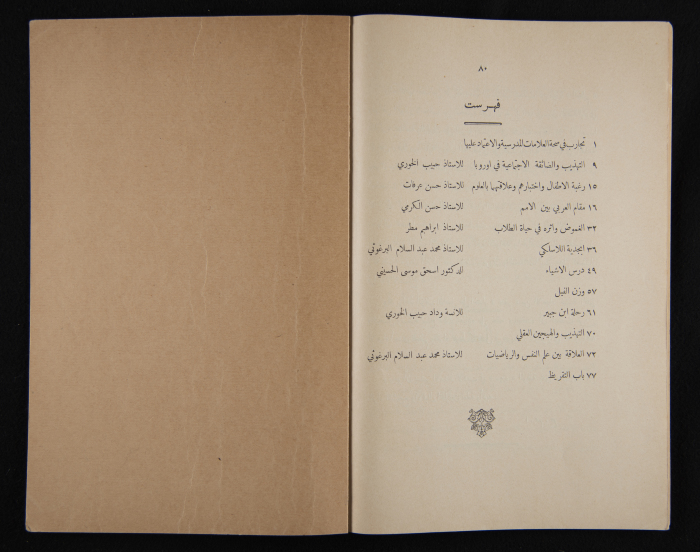 ٨٠
فهرست
١ تجارب في صحة العلامات المدرسية والاعتماد عليها
٩ التهذيب والضائقة الاجتماعية في اوروبا للاستاذ حبيب الخوري
١٥ رغبة الاطفال واختبارهم وعلاقتهما بالعلوم للاستاذ حسن عرفات
١٦ مقام العربي بين الامم للاستاذ حسن الكرمي
٣٢ الغموض واثره في حياة الطلاب للاستاذ ابراهيم مطر
٣٦ ابجدية اللاسلكي للاستاذ محمد عبد السلام البرغوثي
٤٩ درس الاشياء للدكتور اسحق موسى الحسيني
٥٧ وزن الفيل
٦١ رحلة ابن جبير للانسة وداد حبيب الخوري
٧٠ التهذيب والهيجين العقلي
٧٣ العلاقة بين علم النفس والرياضيات للاستاذ محمد عبد السلام البرغوثي
٧٧ باب التقريظ